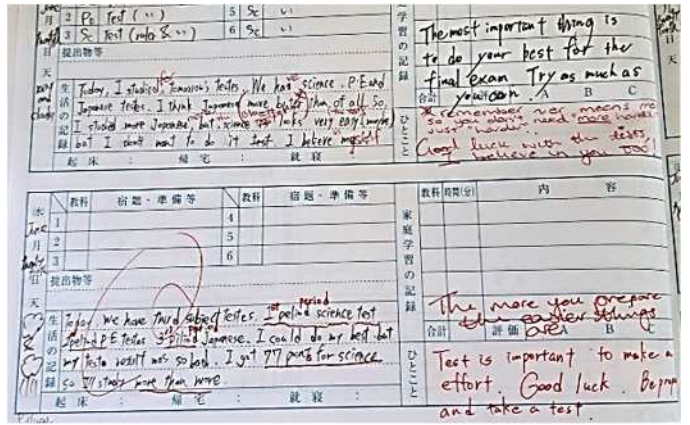 2 Pe Test ( 〃 ) 5 Sc 〃
3 Sc Test ( 〃) 6 Sc 〃
提出物等
Today, I studied for tomorrow's testes. We has science. P.E and
Japanese testes. I think Japanese more better than of all. So,
I studied more Japanese, but science look very easy (maybe)
but I don't want to do it test. I believe myself
起床 : 帰宅 : 就寝
生活の記録
家庭学習の記録
The most important thing is
to do your best for the
final exam. Try as much as
you can.
合計 A B C
ひとこと
*remember "er" means more
so you don't need more harder
just "harder".
Good luck with the tests.
I believe in you too!
水
June
月
日
天
教科 宿題・準備等 教科 宿題・準備等
1 4
2 5
3 6
提出物等
生活の記録
Today we have third subject testes. 1st pelind period science test
pelind P.E testes 3 pilind period Japanese. I could do my best but
my testa result was so bad. I got 77 points for science
so I'll study more than more.
起床 : 帰宅 : 就寝 :
家庭学習の記録
教科 時間(分) 内容
The more you prepare
the easier things
are
合計 評価 A B C
ひとこと
Test is important to make a
effort. Good luck. Be prep
and take a test.